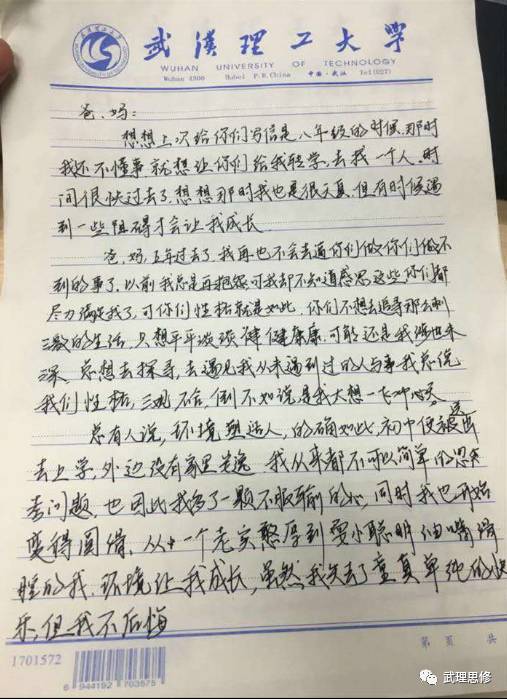 武汉理工大学
武漢理工大学
WUHAN UNIVERSITY OF TECHNOLOGY
Wuhan 4300 Hubei P.R.China 中国·武汉 Tel(027)
爸、妈：
想想上次给你们写信是八年级的时候，那时
我还不懂事就想让你们给我转学，去找一个人。时
间很快过去了，想想那时我也是很天真，但有时候遇
到一些阻碍才会让我成长。
爸、妈，五年过去了，我再也不会去逼你们做你们做不
到的事了，以前我总是再抱怨，可我却不知道感恩这些，你们都
尽力满足我了，可你们性格就是如此，你们不想去追寻那么刺
激的生活，只想平平淡淡健健康康，可能还是我涉世未
深，总想去探寻，去遇见我从未遇到过的人与事，我总说
我们性格，三观不合，倒不如说是我太想一飞冲天。
总有人说，环境塑造人，的确如此，初中便被送出
去上学，外边没有家里安逸，我从来都不可以简单的思来
去问题，也因此我多了一颗不服输的心，同时我也开始
变得圆滑，从一个老实憨厚到耍小聪明
的我，环境让我成长，虽然我失去了童真单纯的快
乐，但我不后悔
第 页 共
1701572
6 944192 703575
武理思修